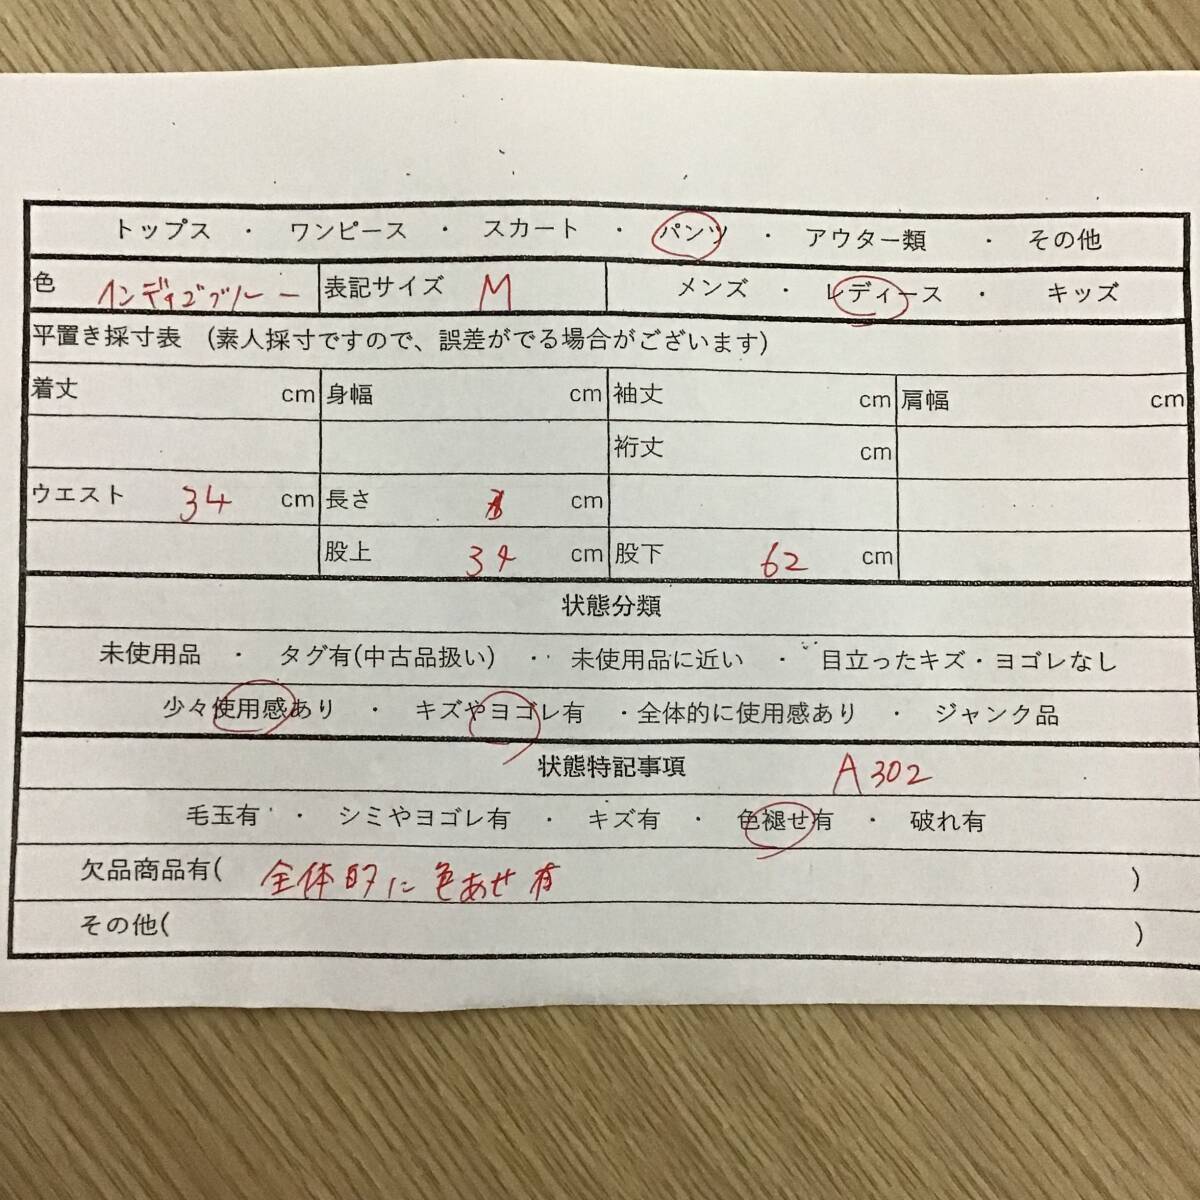 トップス ・ ワンピース ・ スカート ・ パンツ ・ アウター類 ・ その他
色 インディゴブルー 表記サイズ M メンズ ・ レディース ・ キッズ
平置き採寸表 (素人採寸ですので、誤差がでる場合がございます)
着丈 cm 身幅 cm 袖丈 cm 肩幅 cm
裄丈 cm
ウエスト 34 cm 長さ cm
股上 34 cm 股下 62 cm
状態分類
未使用品 ・ タグ有(中古品扱い) ・ 未使用品に近い ・ 目立ったキズ・ヨゴレなし
少々使用感あり ・ キズやヨゴレ有 ・全体的に使用感あり ・ ジャンク品
状態特記事項 A302
毛玉有 ・ シミやヨゴレ有 ・ キズ有 ・ 色褪せ有 ・ 破れ有
欠品商品有( 全体的に色あせ有 )
その他( )